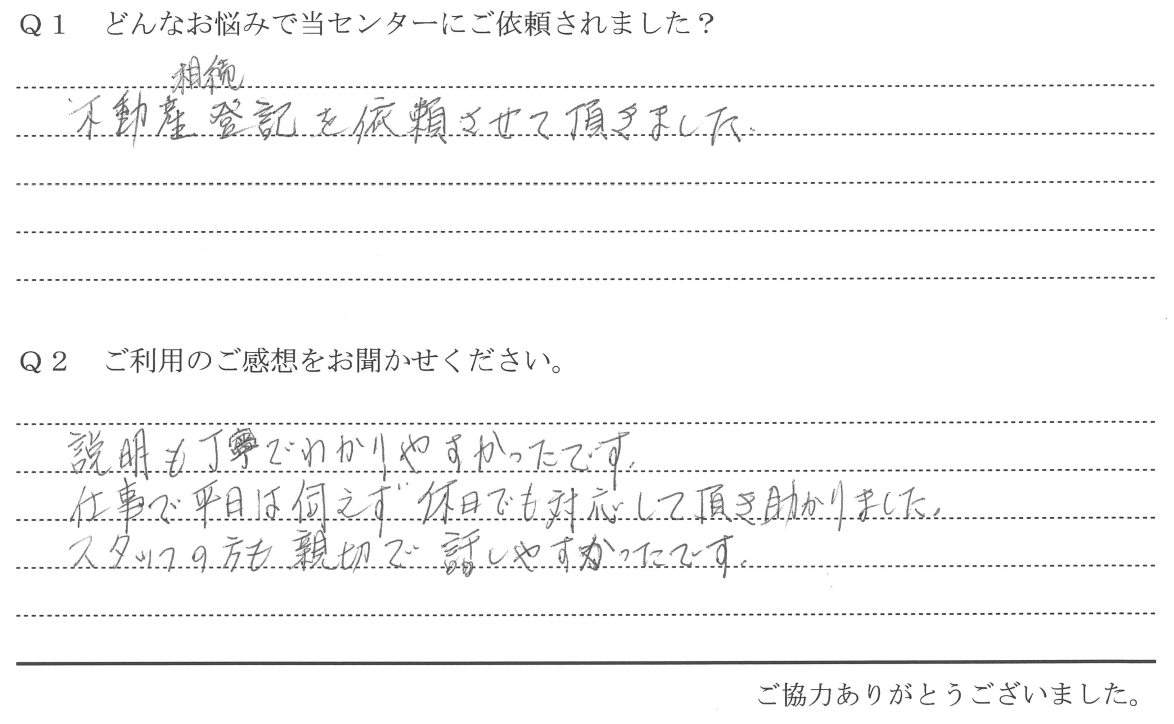 Q1 どんなお悩みで当センターにご依頼されました?
相続
不動産登記を依頼させて頂きました。
Q2 ご利用のご感想をお聞かせください。
説明も丁寧でわかりやすかったです。
仕事で平日は伺えず休日でも対応して頂き助かりました。
スタッフの方も親切で話しやすかったです。
ご協力ありがとうございました。